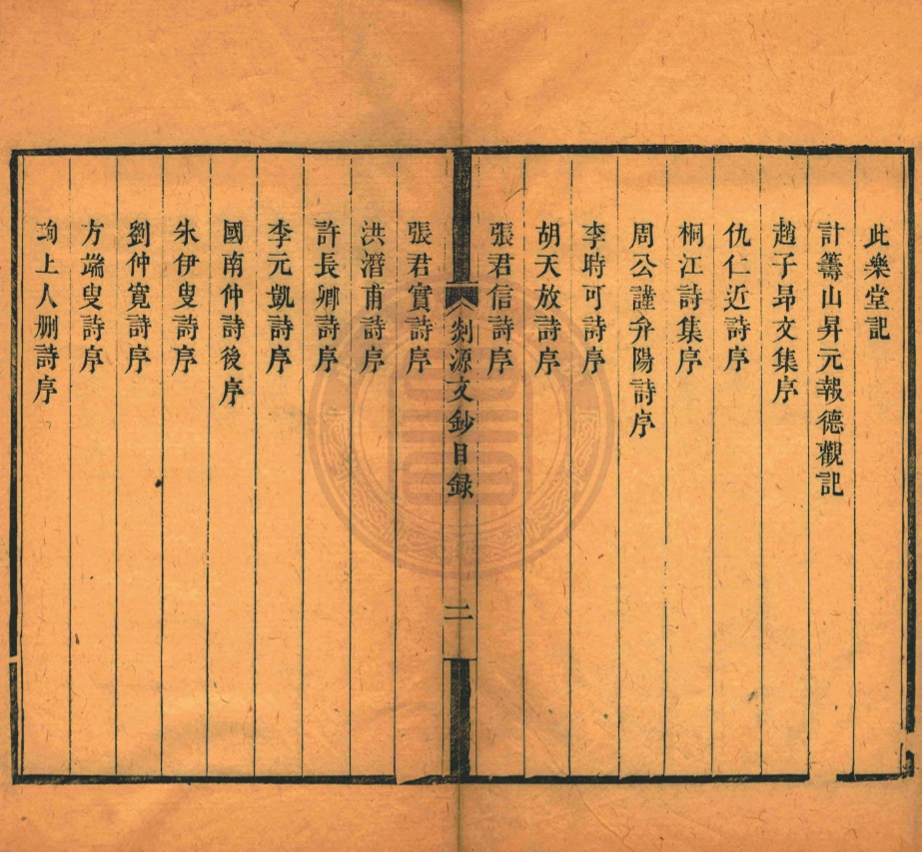 此樂堂記
計籌山昇元報德觀記
趙子昂文集序
仇仁近詩序
桐江詩集序
周公謹弁陽詩序
李時可詩序
胡天放詩序
張君信詩序
剡源文鈔目録
二
張君實詩序
洪潛甫詩序
許長卿詩序
李元凱詩序
國南仲詩後序
朱伊叟詩序
劉仲寬詩序
方端叟詩序
珣上人刪詩序